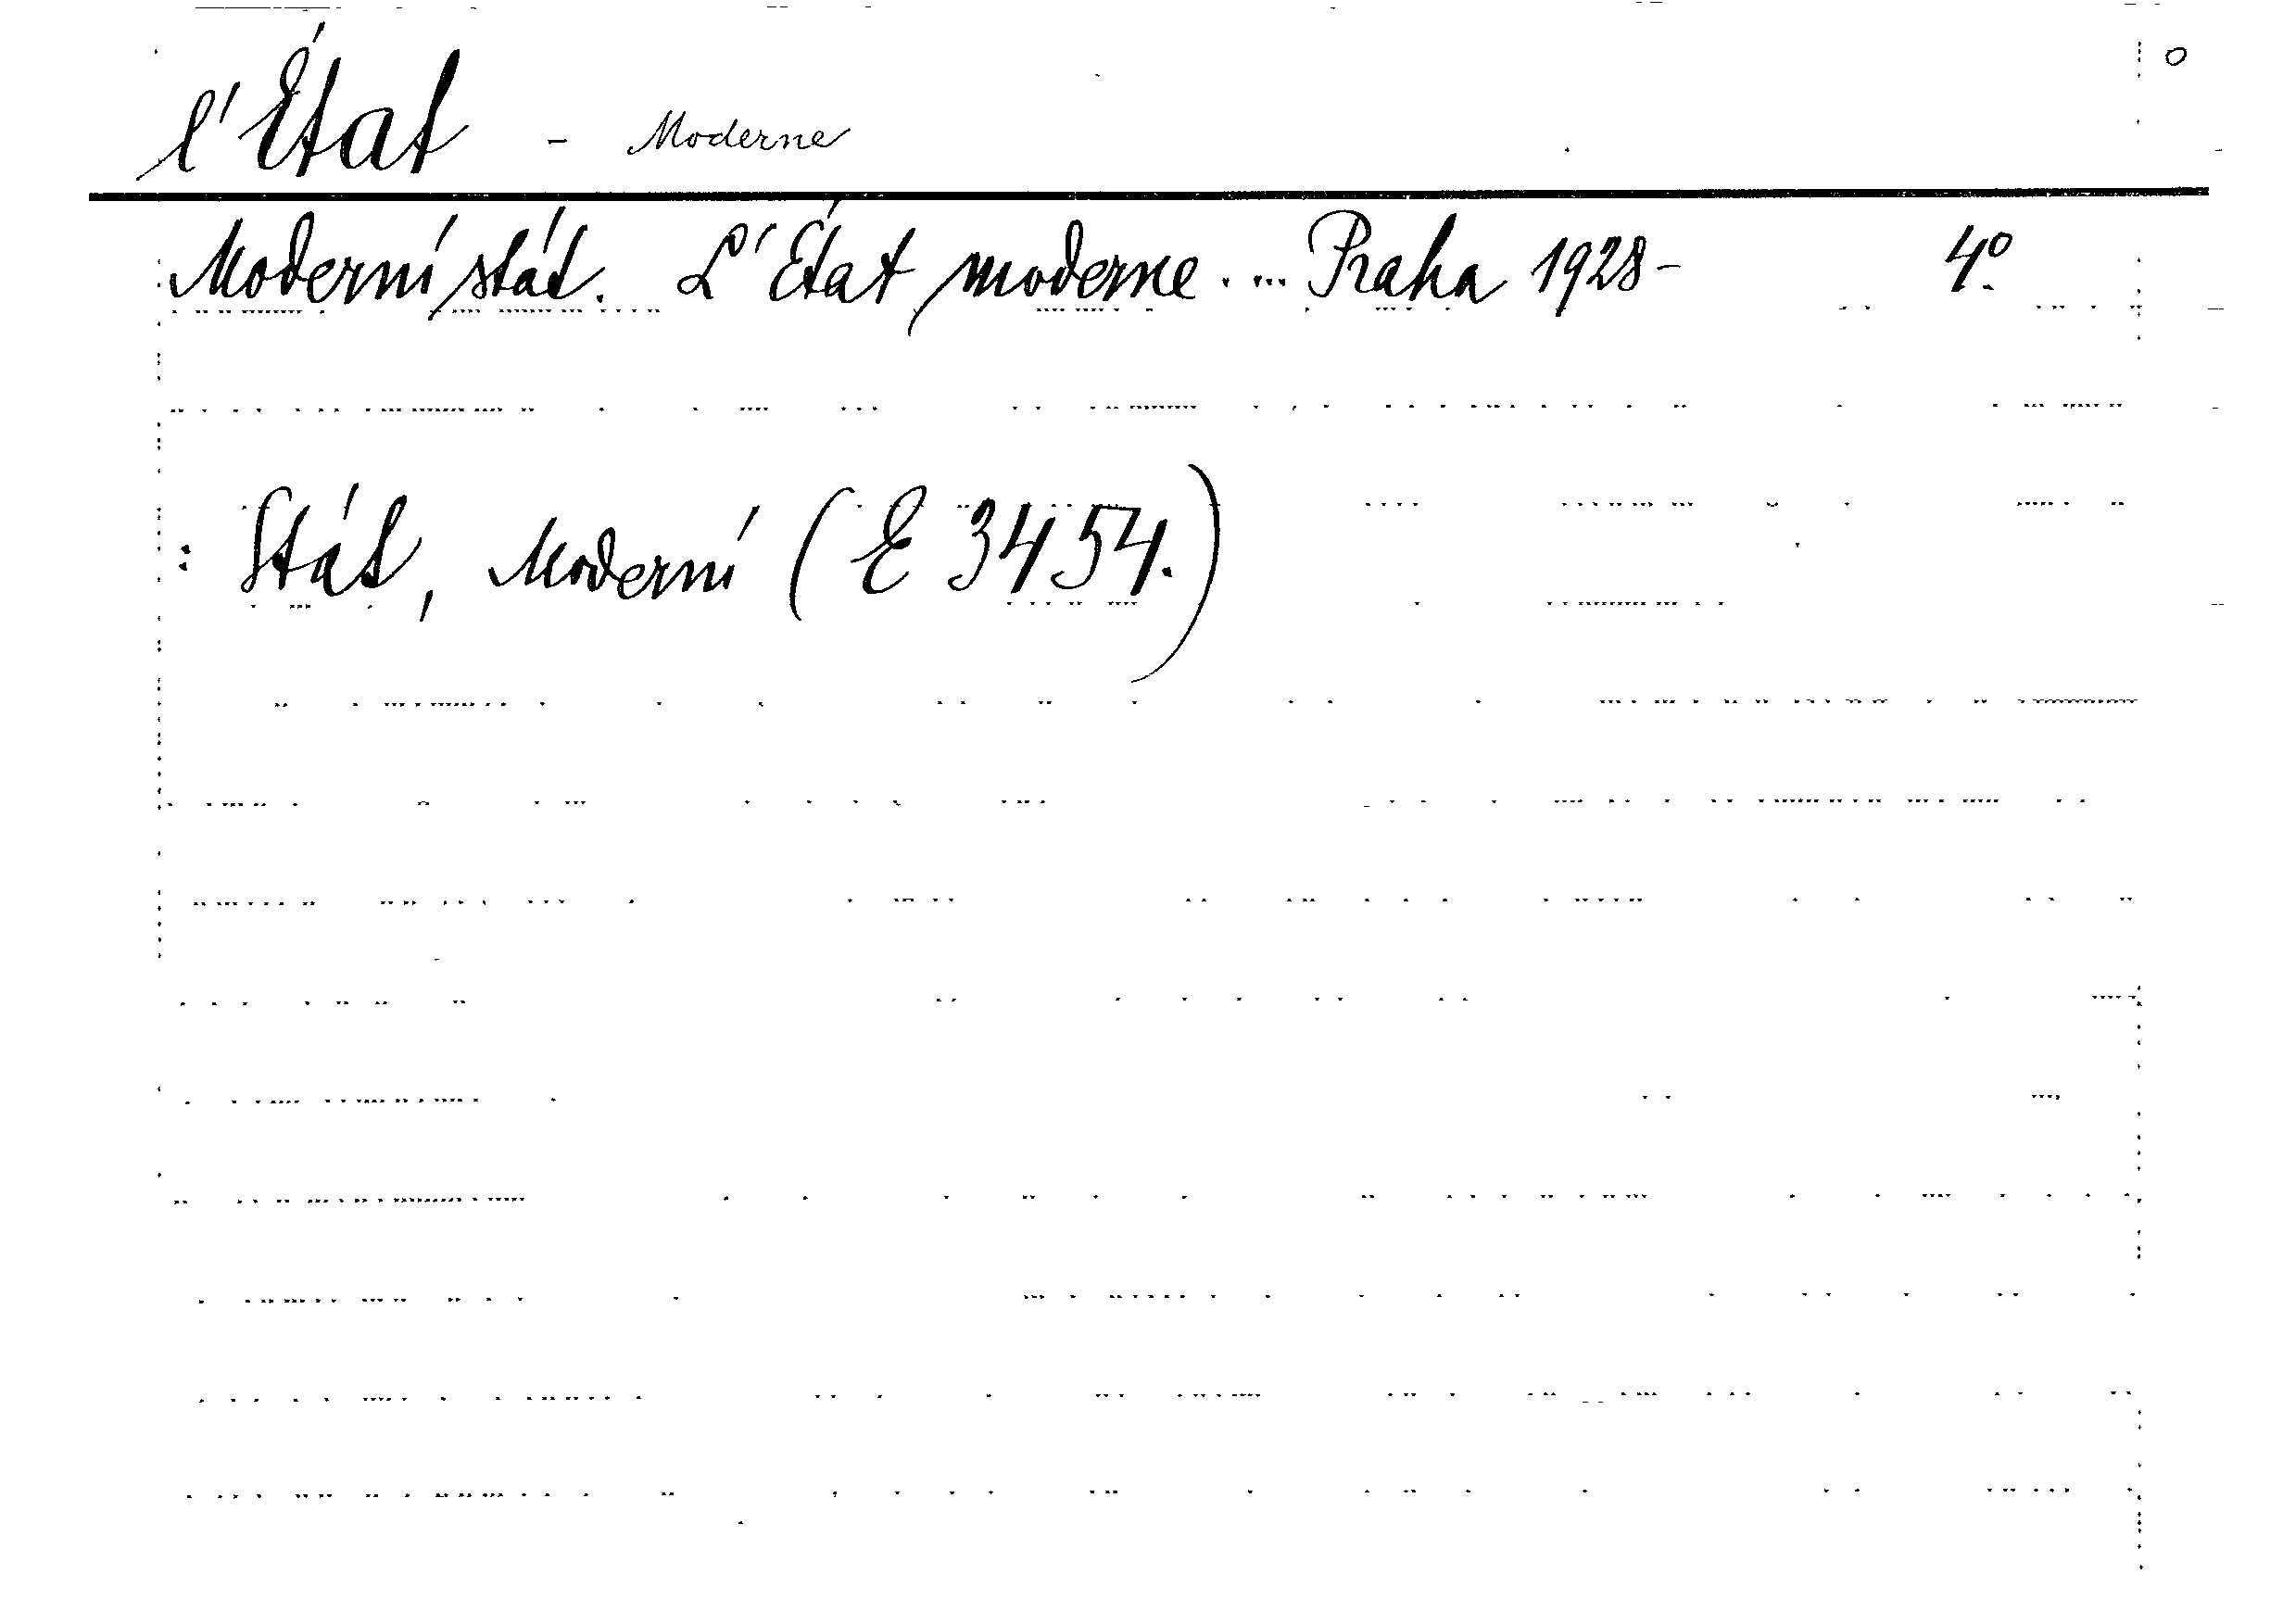 l'État - Moderne
Moderní stát. L'État moderne.... Praha 1928- 4°.
: Stát, Moderní (E 3454.)